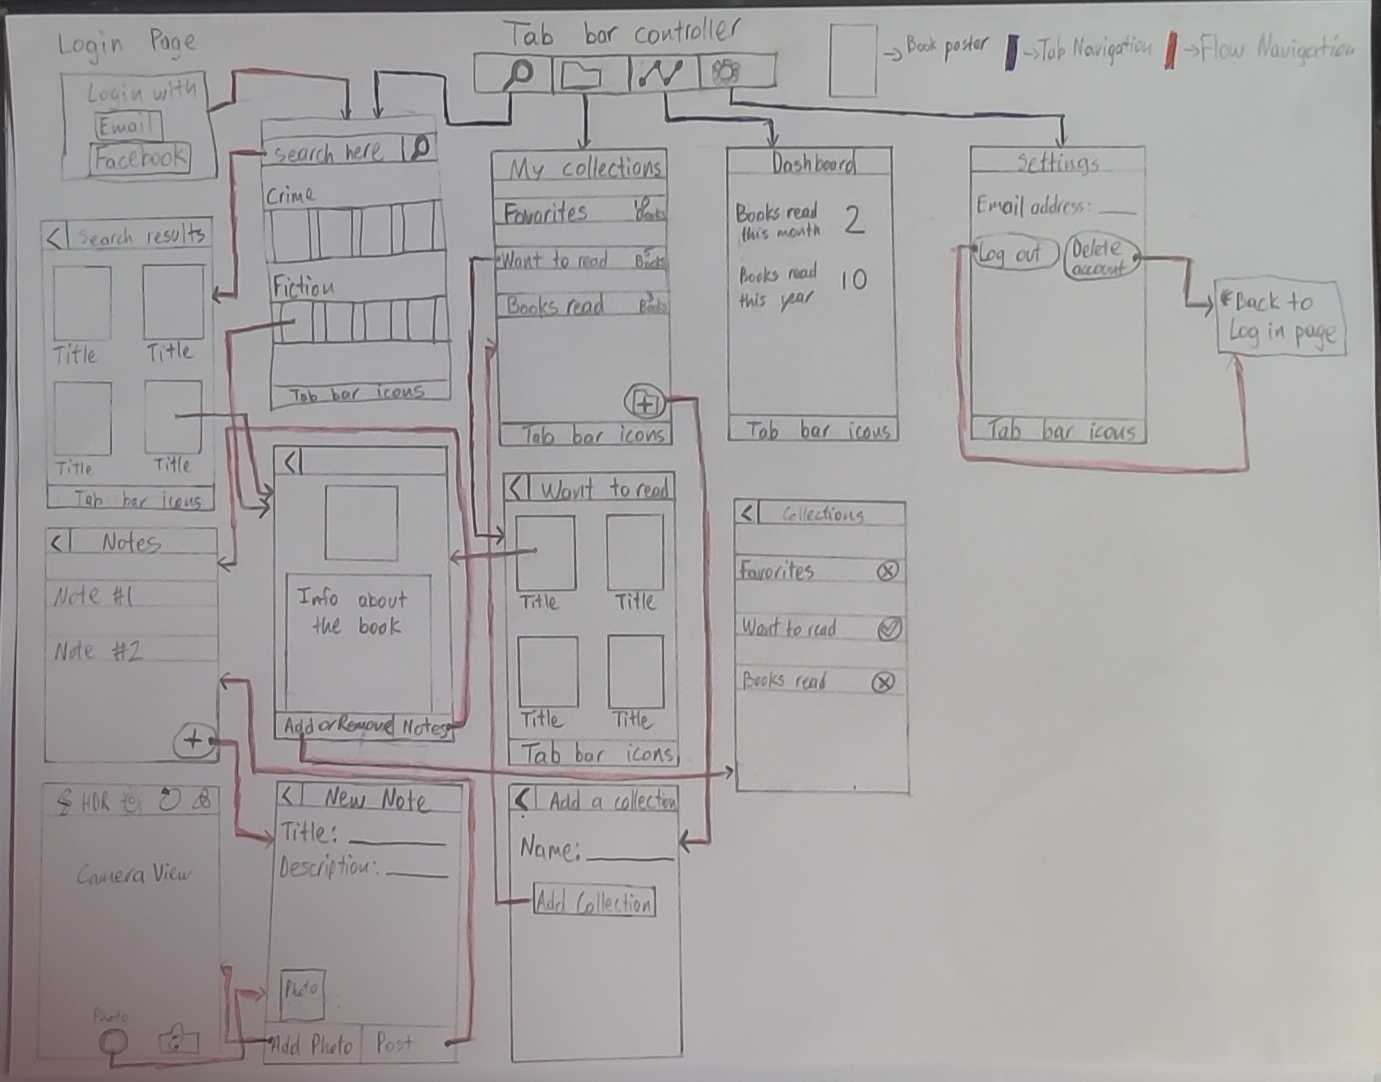 Login Page
Tab bar controller
→ Book poster
→ Tab Navigation
→ Flow Navigation
Login with
Email
Facebook
search here
Crime
Fiction
Tab bar icons
My collections
Favorites
Want to read
Books
Books read
Books
Tab bar icons
Dashboard
Books read
this month 2
Books read
this year 10
Tab bar icons
Settings
Email address:
Log out
Delete
account
Tab bar icons
*Back to
Log in page
< Search results
Title Title
Title Title
Tab bar icons
<
Info about
the book
Add or Remove Notes
< Want to read
Title Title
Title Title
Tab bar icons
< Collections
Favorites
Want to read
Books read
< Notes
Note #1
Note #2
+
HDR
Camera View
Photo
< New Note
Title:
Description:
Photo
Add Photo Post
< Add a collection
Name:
Add Collection